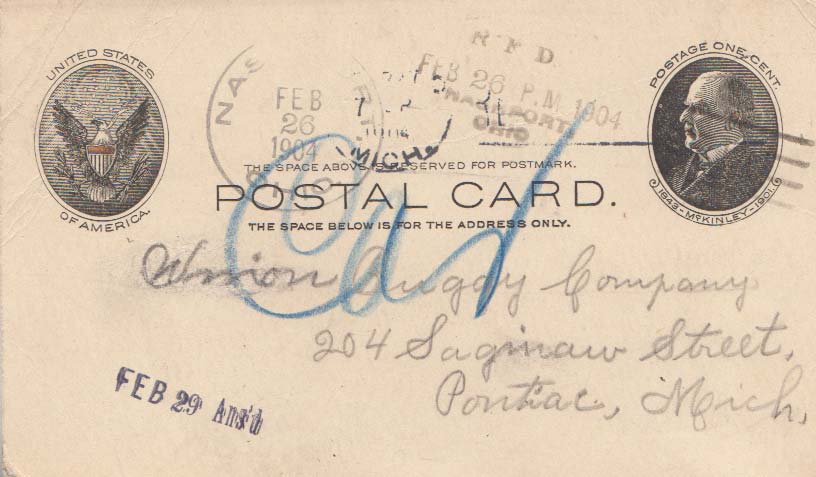 UNITED STATES
OF AMERICA.
FEB
26
1904
R F D
FEB 26 P.M. 1904
OHIO
MICH.
POSTAGE ONE CENT.
1843-McKINLEY-1901.
THE SPACE ABOVE IS RESERVED FOR POSTMARK.
POSTAL CARD.
THE SPACE BELOW IS FOR THE ADDRESS ONLY.
Union Buggy Company
204 Saginaw Street,
Pontiac, Mich.
FEB 29 Ans'd